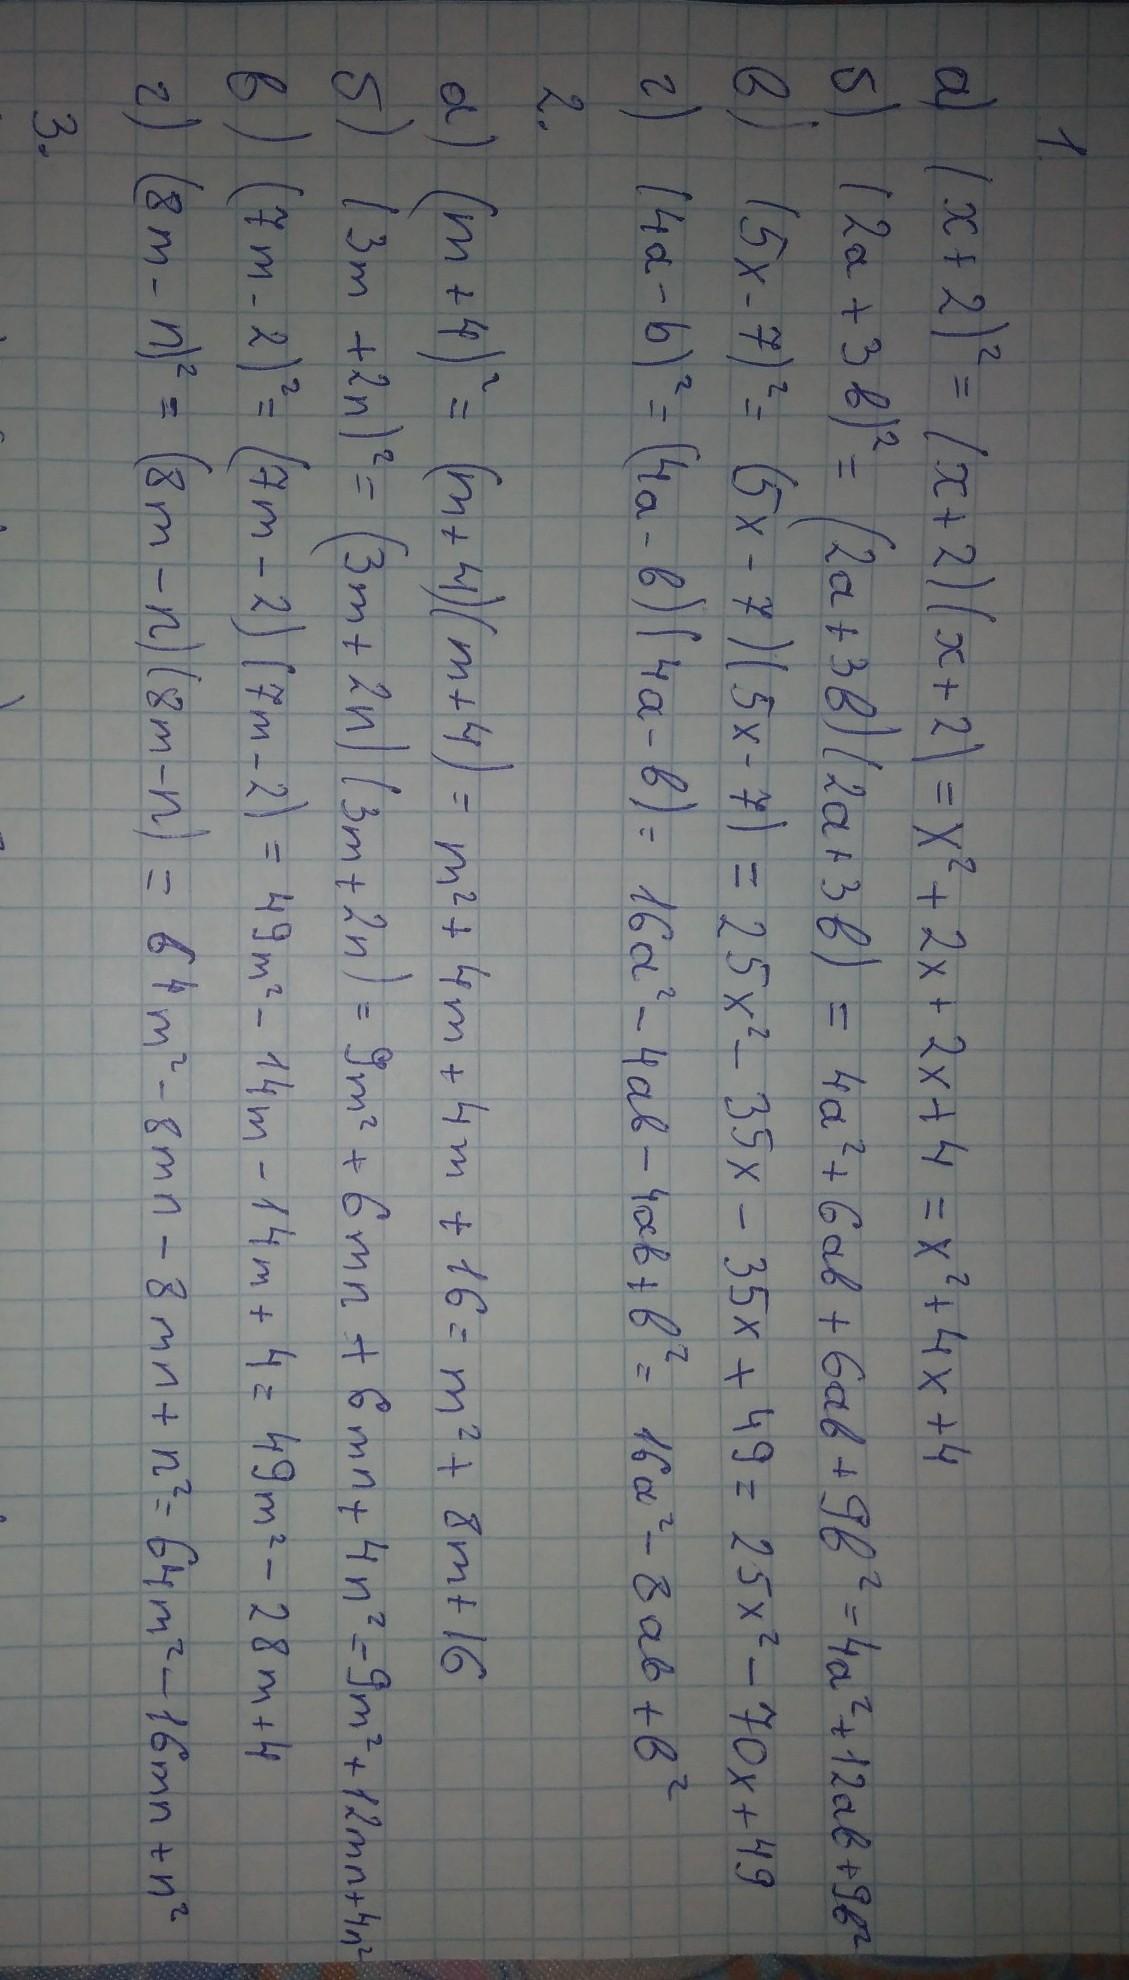 1.
а) (x+2)² = (x+2)(x+2) = x²+2x+2x+4 = x²+4x+4
б) (2a+3b)² = (2a+3b)(2a+3b) = 4a²+6ab+6ab+9b² = 4a²+12ab+9b²
в) (5x-7)² = (5x-7)(5x-7) = 25x²-35x-35x+49 = 25x²-70x+49
г) (4a-b)² = (4a-b)(4a-b) = 16a²-4ab-4ab+b² = 16a²-8ab+b²
2.
а) (m+4)² = (m+4)(m+4) = m²+4m+4m+16 = m²+8m+16
б) (3m+2n)² = (3m+2n)(3m+2n) = 9m²+6mn+6mn+4n² = 9m²+12mn+4n²
в) (7m-2)² = (7m-2)(7m-2) = 49m²-14m-14m+4 = 49m²-28m+4
г) (8m-n)² = (8m-n)(8m-n) = 64m²-8mn-8mn+n² = 64m²-16mn+n²
3.